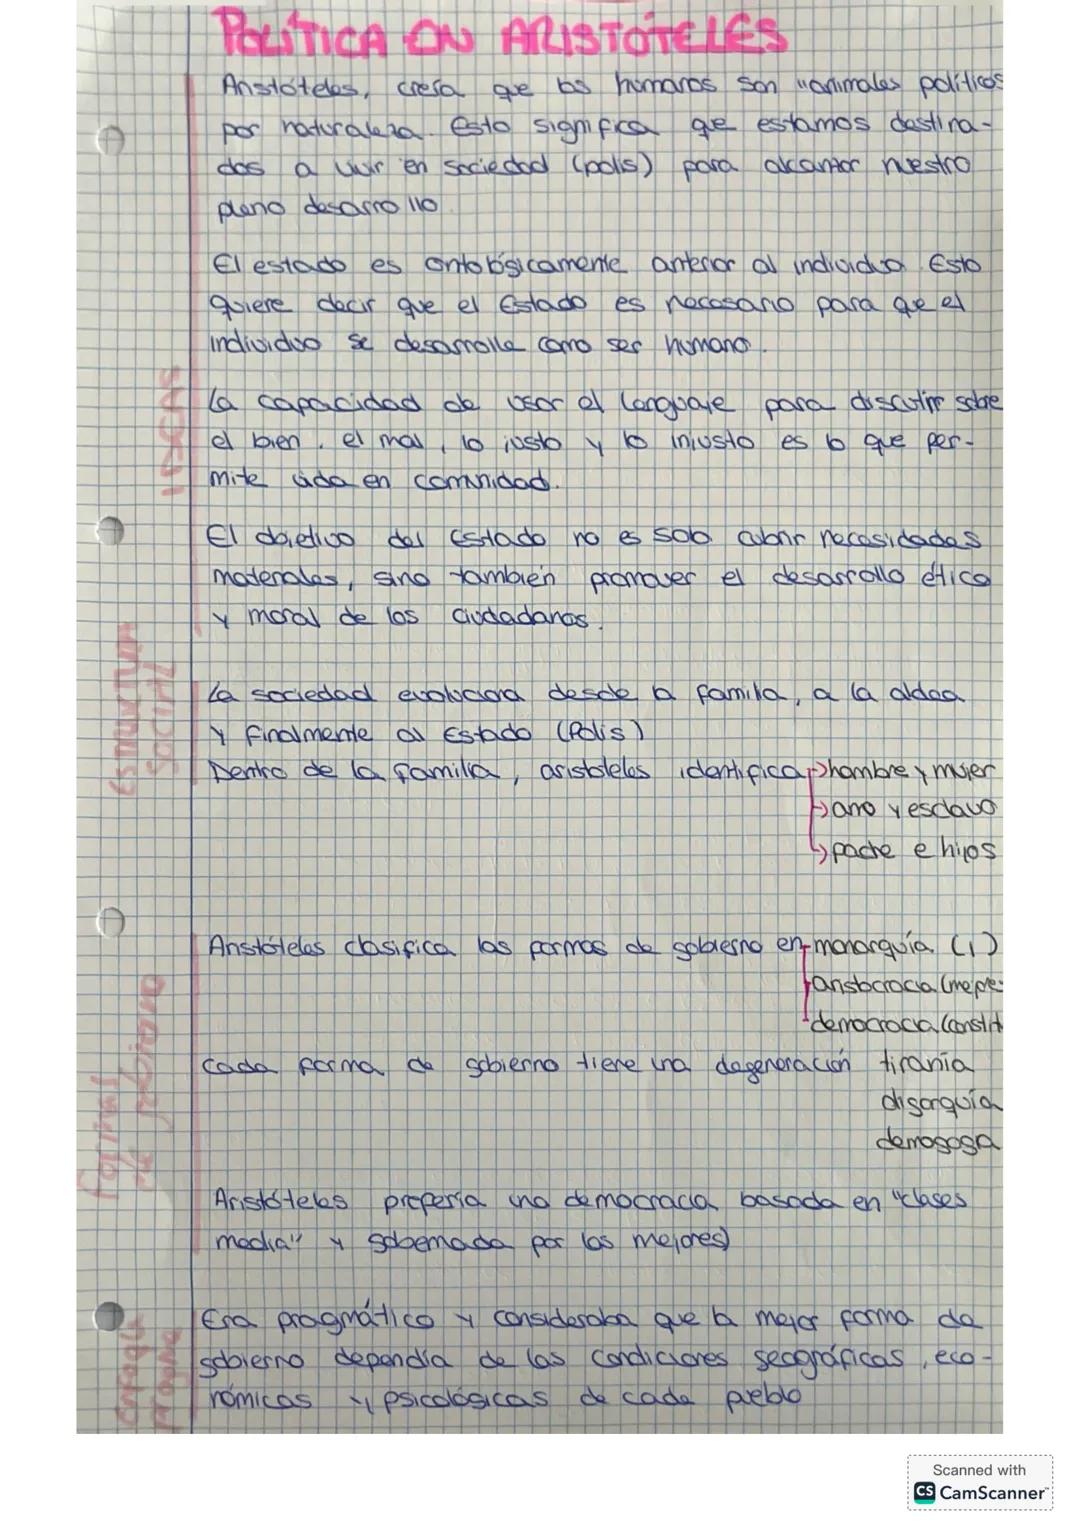 POLÍTICA EN ARISTÓTELES
Aristóteles, creía que los humanos son "animales políticos
por naturaleza. Esto significa que estamos destina-
dos a vivir en sociedad (polis) para alcanzar nuestro
pleno desarrollo
El estado es ontológicamente anterior al individuo. Esto
quiere decir que el Estado es necesario para que el
individuo se desarrolle como ser humano.
IDEAS
La capacidad de usar el lenguaje para discutir sobre
el bien, el mal, lo justo y lo injusto es lo que per-
mite vida en comunidad.
El objetivo del Estado no es solo cubrir necesidades
materiales, sino también promover el desarrollo ético
y moral de los ciudadanos.
ESTRUCTURA
SOCIAL
La sociedad evoluciona desde la familia, a la aldea
y finalmente al Estado (Polis)
Dentro de la familia, aristoteles identifica → hombre y mujer
→ amo y esclavo
→ padre e hijos
Formas
de gobierno
Aristóteles clasifica las formas de gobierno en monarquía (1)
aristocracia (mejore
democracia (constit
cada forma de gobierno tiene una degeneración tiranía
oligarquía
demagoga
Aristóteles prefería una democracia basada en "clases
media" y gobernada por los mejores)
enfoque
Era pragmático y consideraba que la mejor forma de
gobierno dependía de las condiciones geográficas, eco-
nómicas y psicológicas de cada pueblo
Scanned with
CS CamScanner